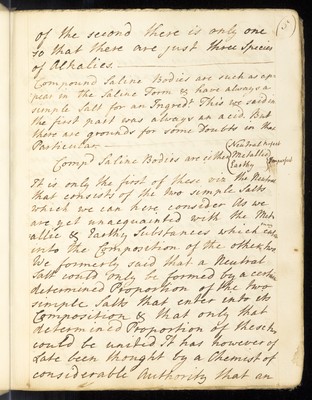 (5)
of the second there is only one
so that there are just three Species
of Alkalies.
Compound Saline Bodies are such as ap-
pear in the Saline Form & have always a
simple Salt for an Ingredt. This we said in
the first part was always an acid. But
there are grounds for some Doubts in that
Particular
Compd Saline Bodies are either
Neutral
Metallic
Earthy
Imperfect
It is only the first of these viz the Neutral
that consists of the two simple Salts
which we can here consider As we
are yet unacquainted with the Met-
allic & Earthy Substances which Enter
into the Composition of the other two
We formerly said that a Neutral
Salt could only be formed by a certn
determined Proportion of the two
simple Salts that enter into its
Composition & that only that
determined Proportion of these
could be united It has however of
Late been thought by a Chemist of
considerable Authority that an